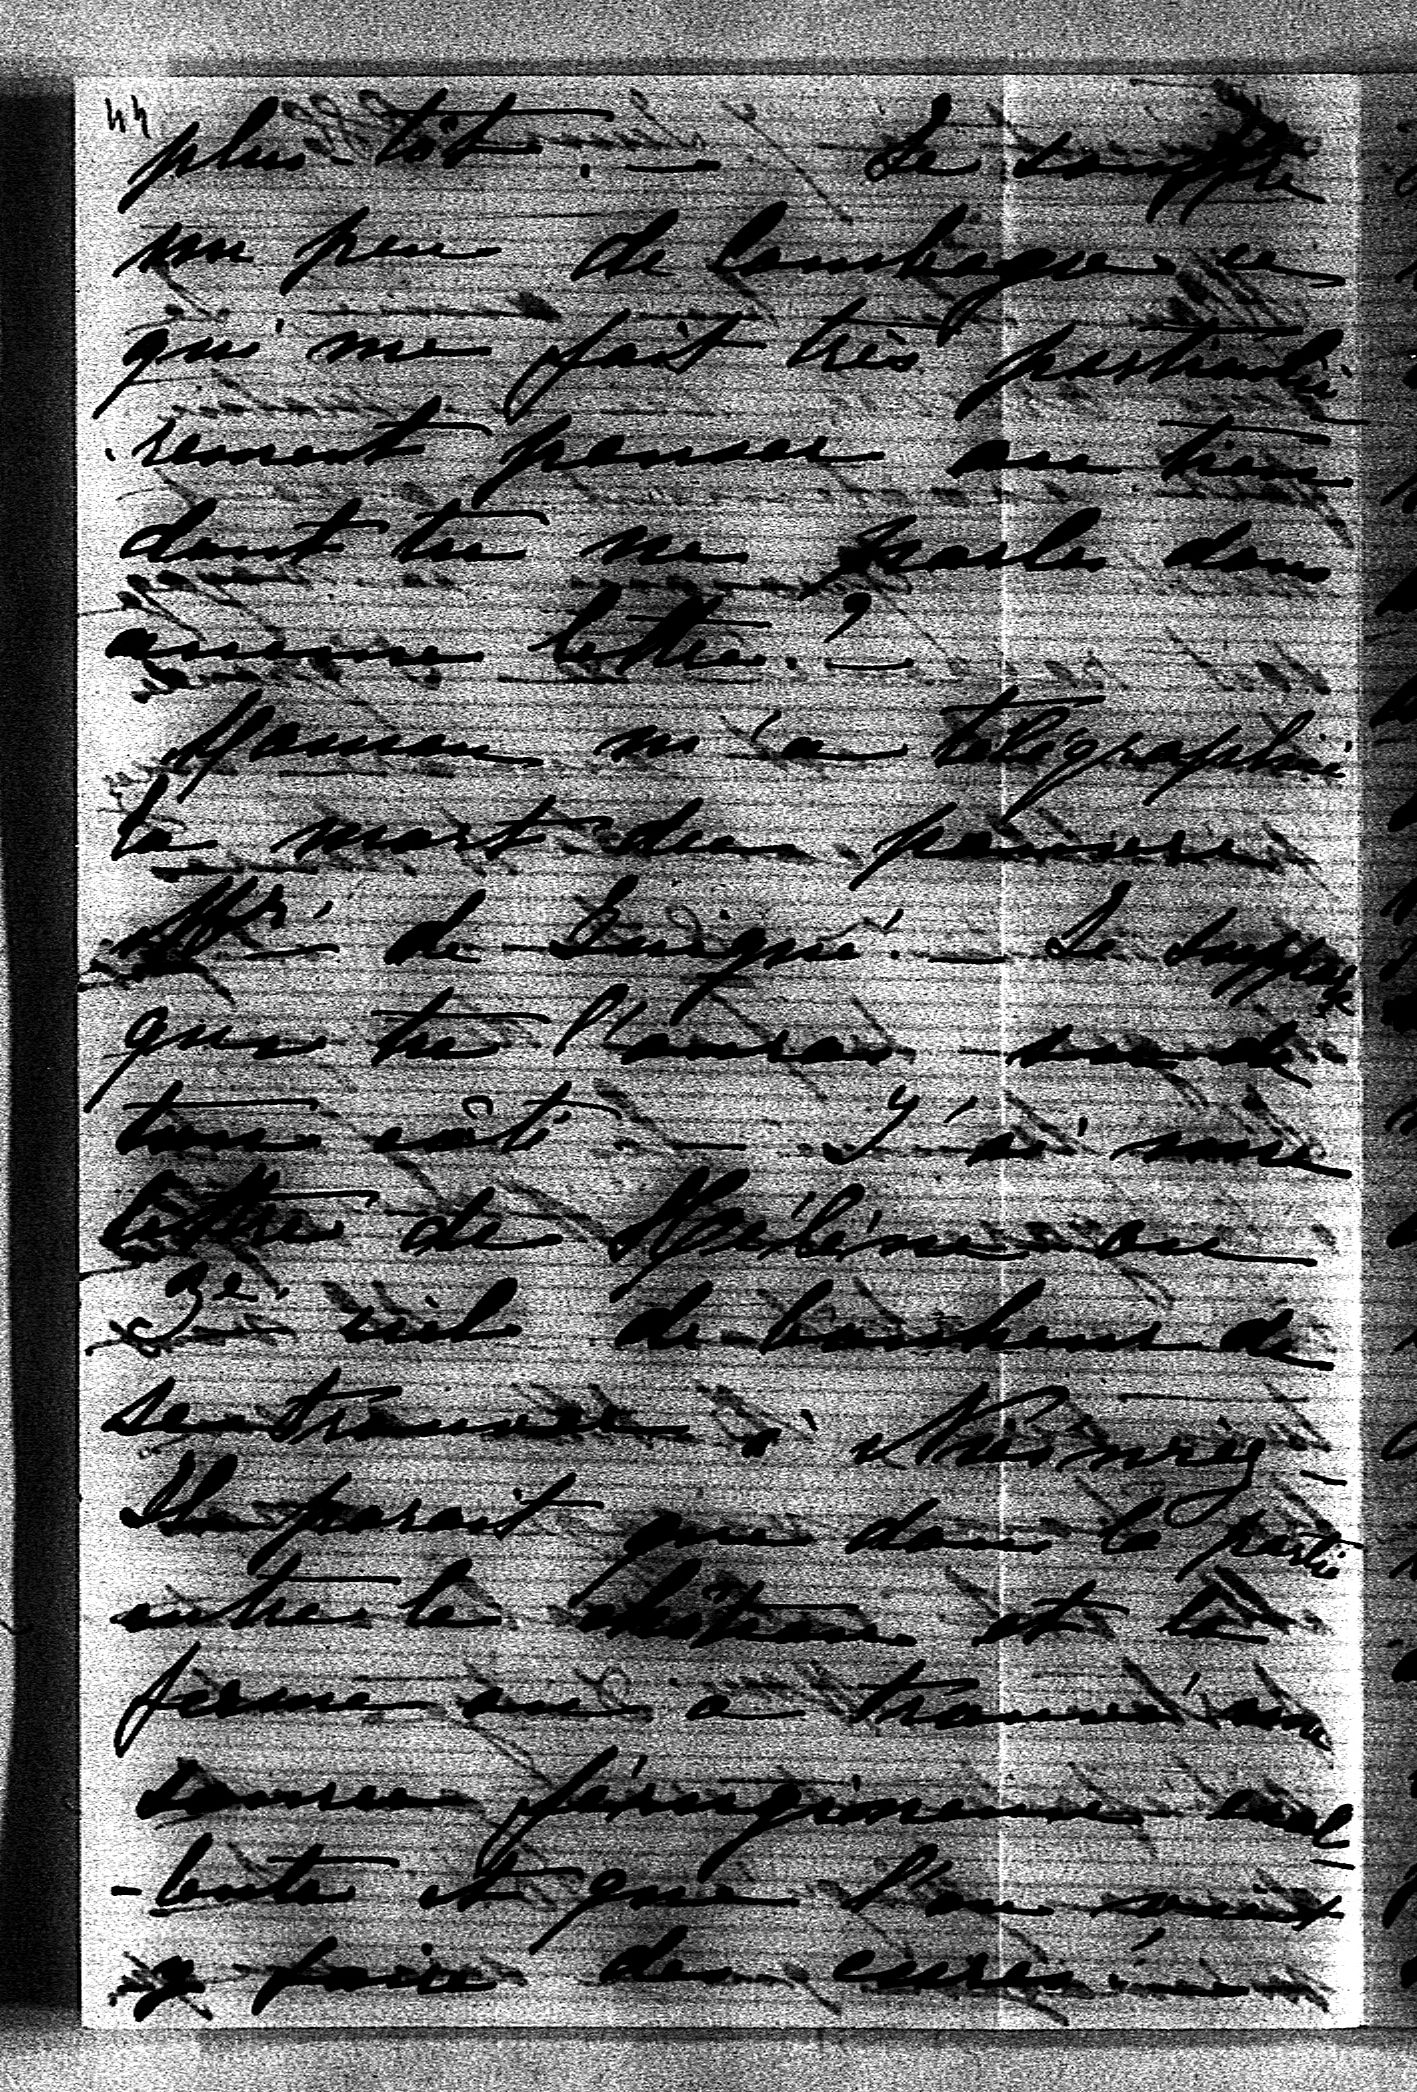 44
plus tôt. — Je souffre
un peu de lombago ce
qui me fait très particuliè
rement penser au tien
dont tu ne parles dans
aucune lettre. ? —
Maman m'a télégraphié
la mort du pauvre
Mr. de — Je suppose
que tu l'auras su de
ton côté — J'ai une
lettre de Marlène au
3e. ciel de bonheur de
se trouver à
Il paraît que dans la partie
entre le château et la
ferme on a trouvé une
source férrugineuse excel
-lente et que l'on vient
y faire des cures —